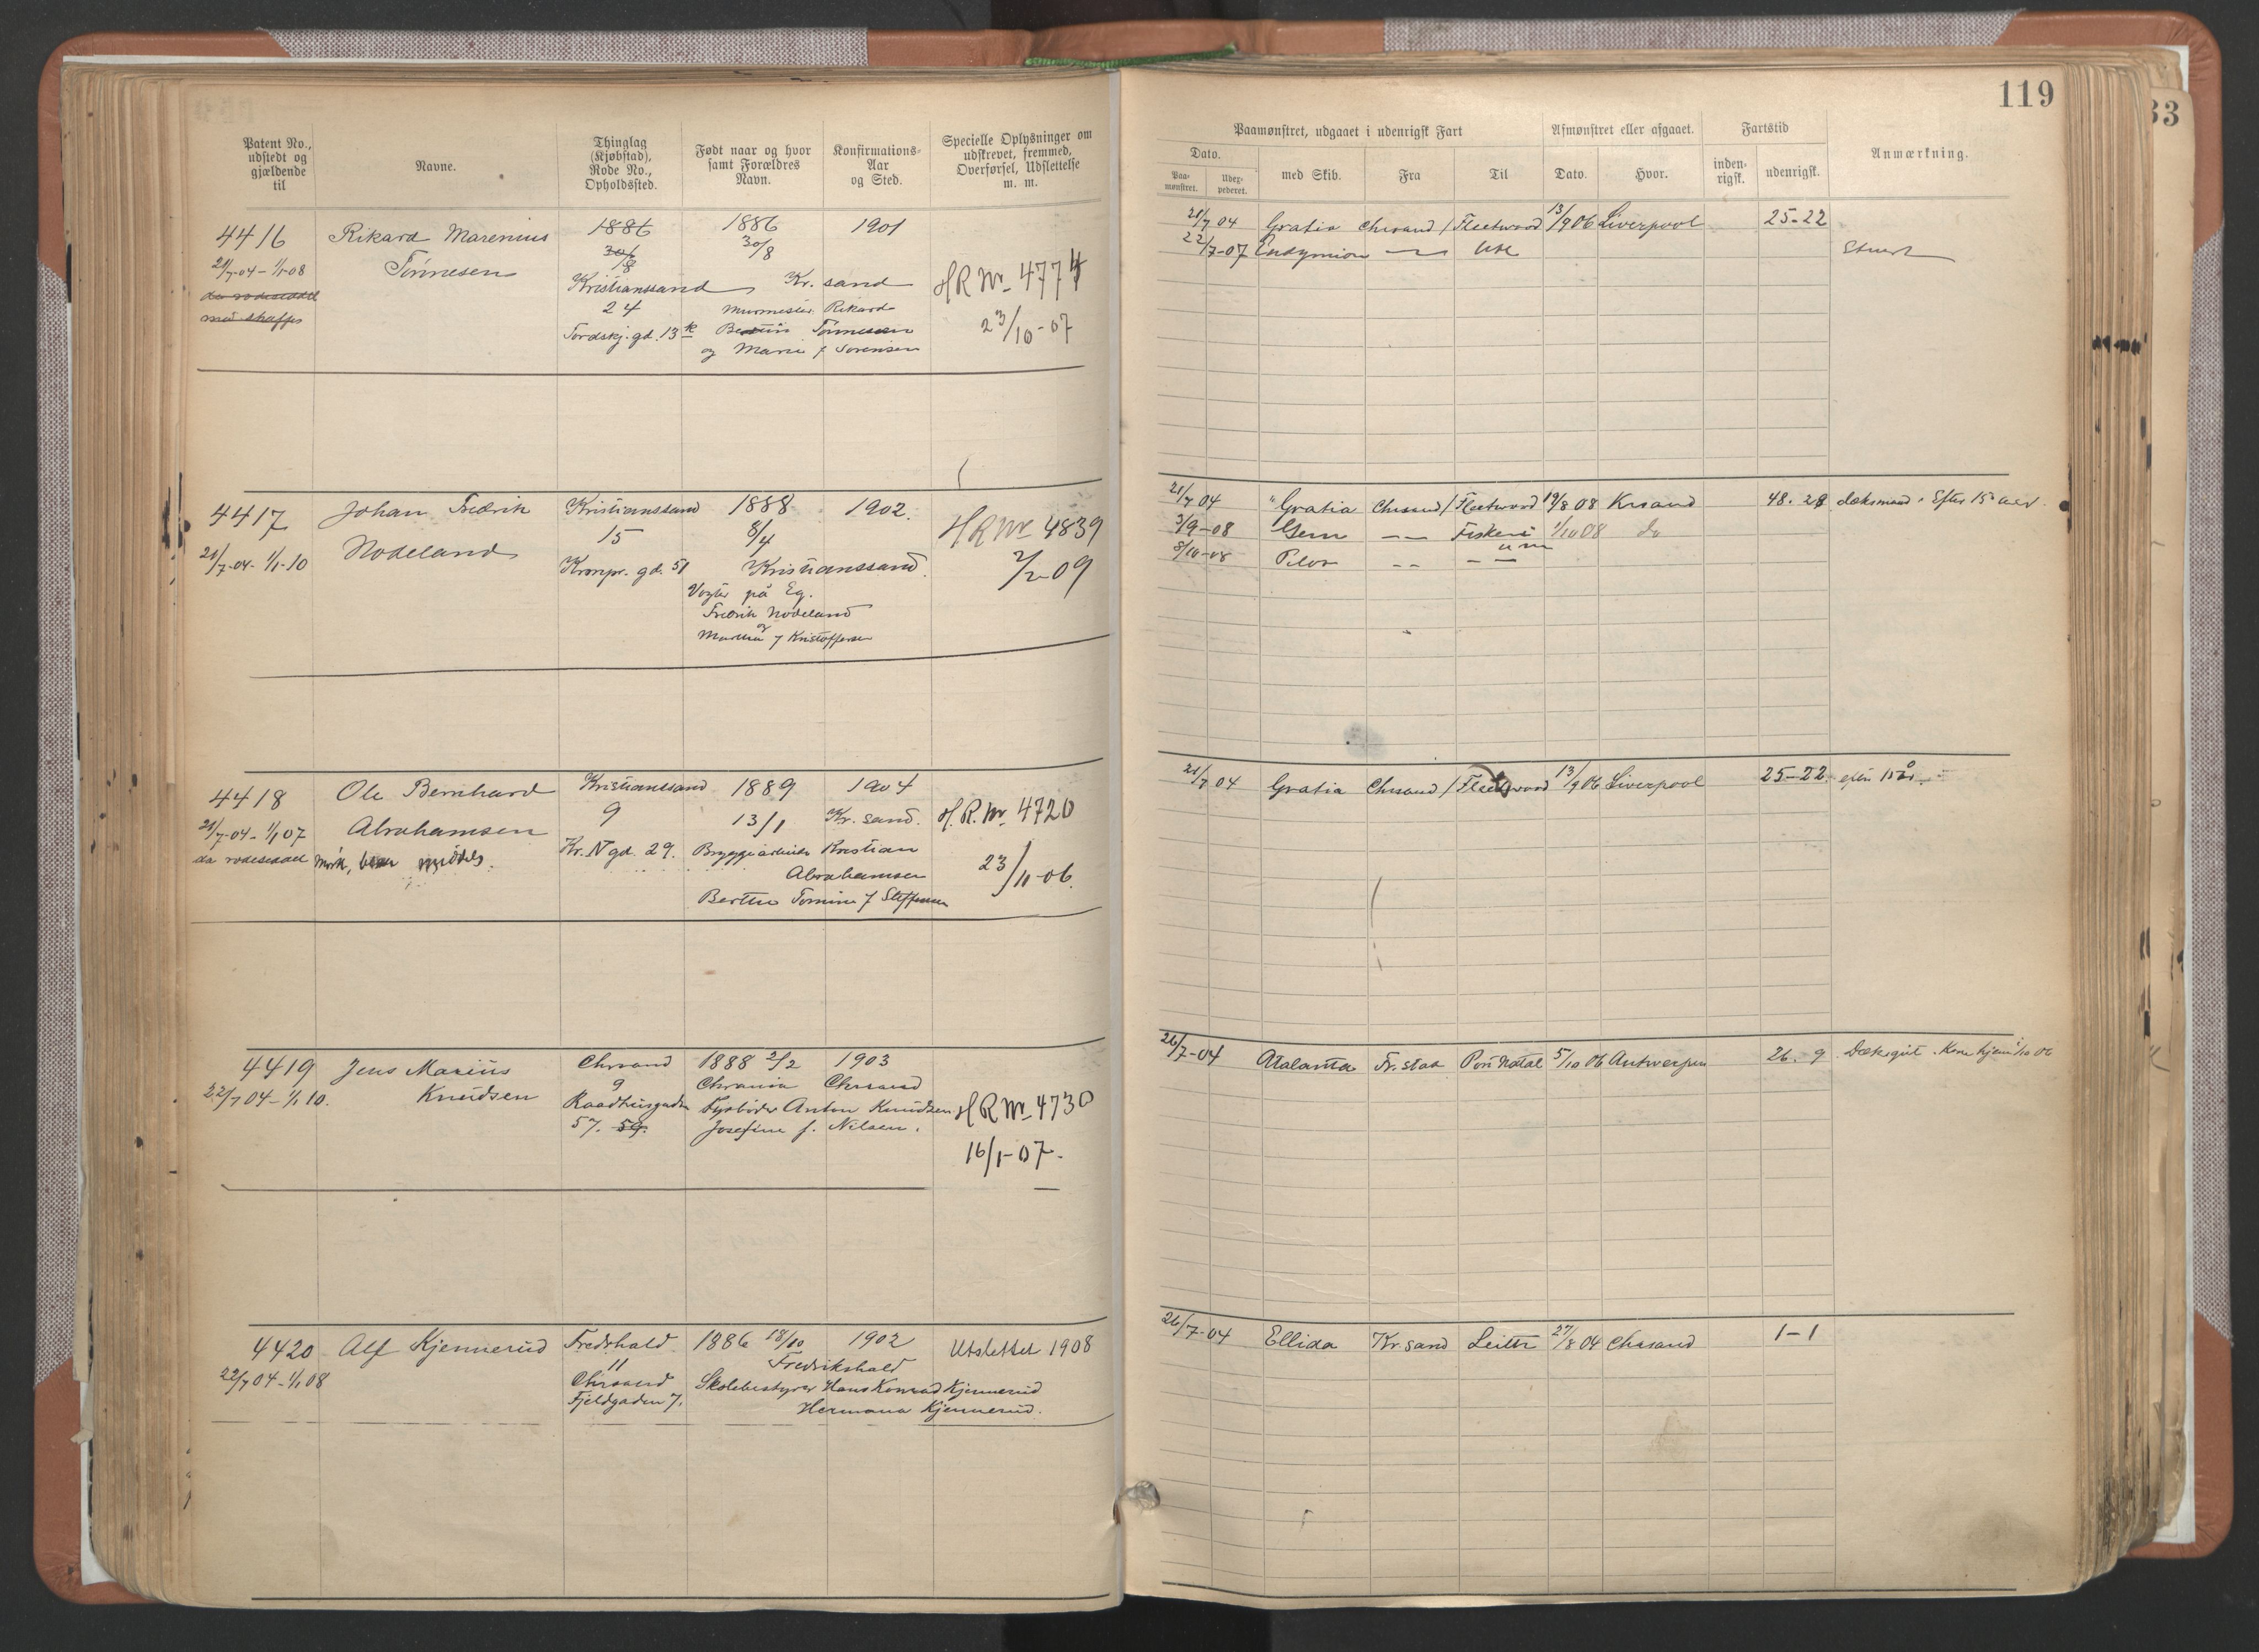 119
33
Patent No., udstedt og gjældende til
Navne.
Thinglag (Kjøbstad), Rode No., Opholdssted.
Født naar og hvor samt Forældres Navn.
Konfirmations-Aar og Sted.
Specielle Oplysninger om udskrevet, fremmed, Overførsel, Udslettelse m. m.
Paamønstret, udgaaet i udenrigsk Fart
Afmønstret eller afgaaet.
Fartstid
Anmærkning.
Dato.
Paa-mønstret.
Udex-pederet.
med Skib.
Fra
Til
Dato.
Hvor.
inden-rigsk.
udenrigsk.
4416
21/7-04 - 1/1-08
Rikard Marenius
Tönnesen
1886
30/8
Kristianssand
24
Tordskj. gd. 13
1886
30/8
Kr. sand
Murmester Rikard
Tönnesen
og Marie f Sörensen
1901
HR Nr 4774
23/10-07
21/7 04 Gratia Chrsand / Fleetwood 13/9 06 Liverpool 25-22
22/7-07 Endymion
4417
21/7-04 - 1/1-10
Johan Fredrik
Nodeland
Kristianssand
15
Kronpr. gd. 51
1888
8/4
Kristianssand.
Vogter på Eg.
Fredrik Nodeland
og
f Kristoffersen
1902.
HR Nr 4839
2/2-09
21/7 04 Gratia Chrsand / Fleetwood 19/8 08 Krsand 48. 28 dæksmand. Efter 15 aar.
3/9-08 Gem -- Fiskeri 1/10 08 do
8/10-08 -- --
4418
21/7-04 - 1/1 07
da rodeseddel
Ole Bernhard
Abrahamsen
Mörk,
Kristianssand
9
Kr. IV gd. 29.
1889
13/1
Bryggearbeider Kristian
Abrahamsen
Berthe Tomine f Steffensen
1904
Kr. sand.
H. R. Nr 4720
23/11-06.
21/7 04 Gratia Chrsand / Fleetwood 13/9 06 Liverpool 25-22. efter 15 år
4419
22/7 04 - 1/1 10.
Jens Marius
Knudsen
Chrsand
9
Raadhusgaden
57. 59.
1888 2/2
Chrania
Fyrböder Anton Knudsen
Josefine f. Nilsen.
1903
Chrsand
HR Nr 4730
16/1-07.
26/7-04 Atalanta Fr. stad Port Natal 5/10 06 Antwerpen 26. 9 Dæksgut. Kom hjem 1/10 06
4420
22/7 04 - 1/1 08
Alf Kjennerud
Fredrhald
11
Chrsand
Fjeldgaden 7.
1886 18/10
Fredrikshald
Skolebestyrer Hans Konrad Kjennerud
Hermana Kjennerud.
1902
Utslettet 1908
26/7-04 Ellida Kr. sand Leith 27/8 04 Chrsand 1-1